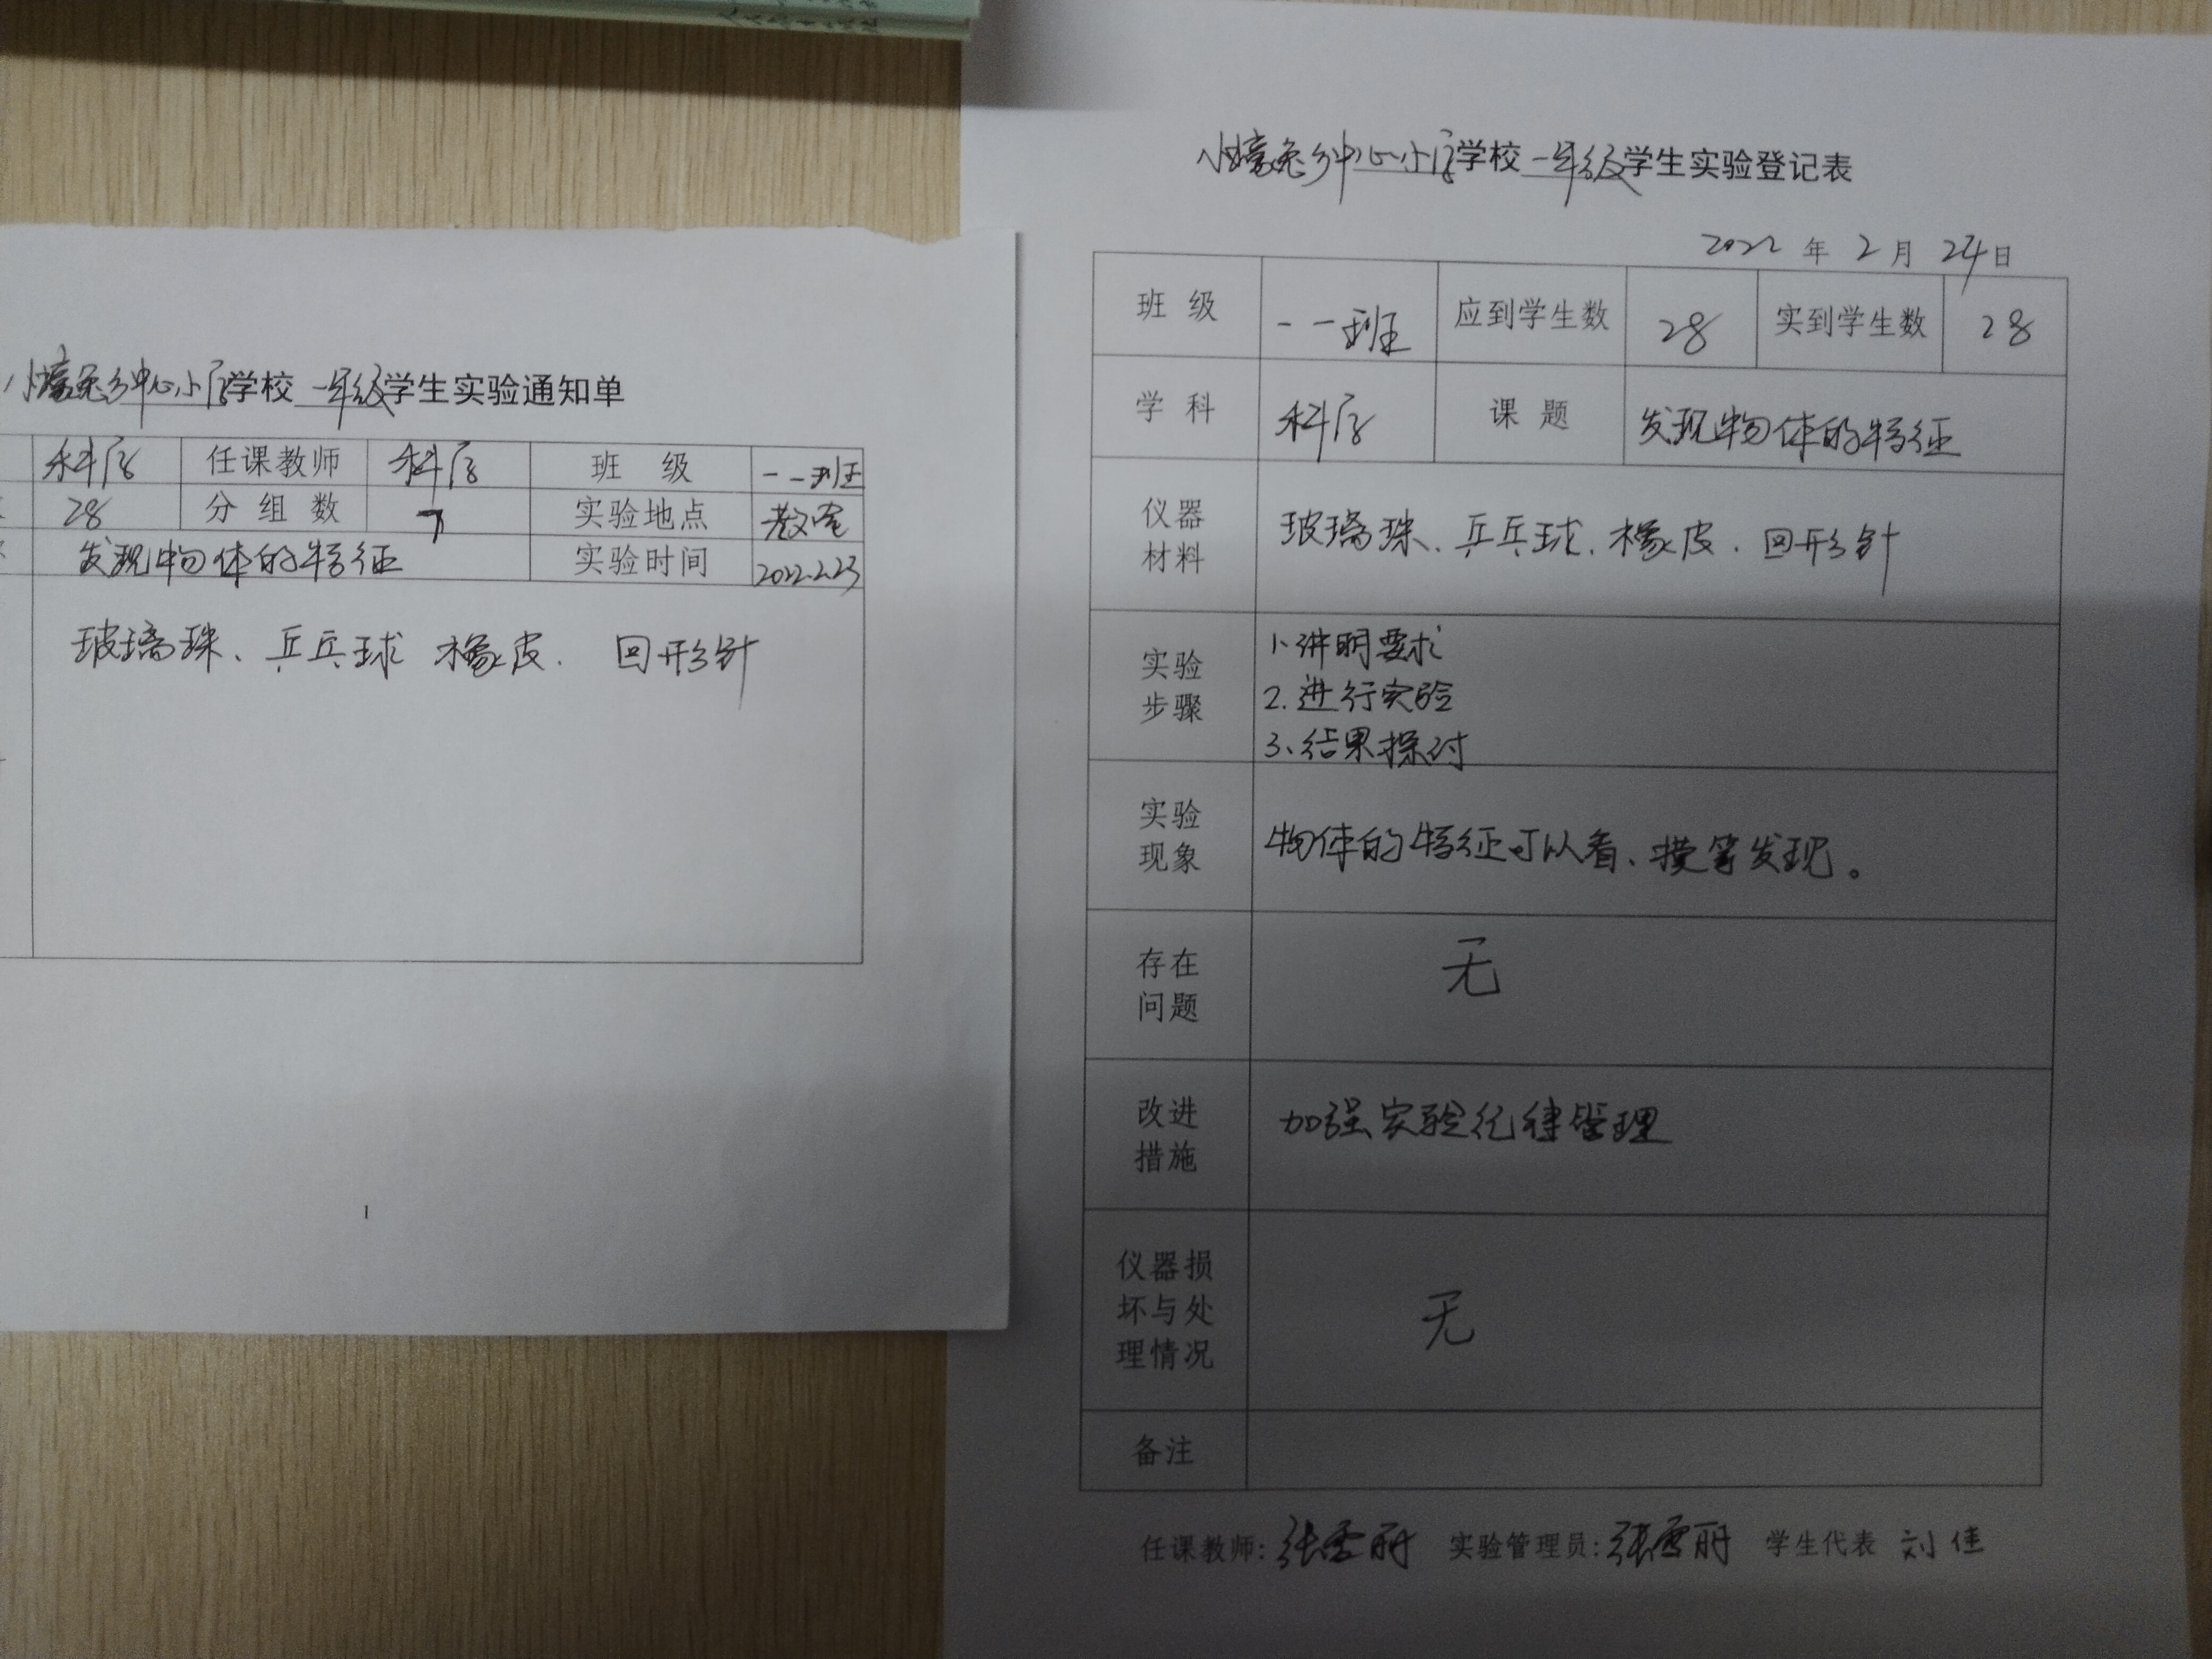 小壕兔乡中心小学学校一年级学生实验通知单
科学 任课教师 科学 班 级 一一班
28 分组数 7 实验地点 教室
发现物体的特征 实验时间 2022.2.23
玻璃珠、乒乓球 橡皮、回形针
1
小壕兔乡中心小学学校一年级学生实验登记表
2022年2月24日
班 级 一一班 应到学生数 28 实到学生数 28
学 科 科学 课 题 发现物体的特征
仪器材料 玻璃珠、乒乓球、橡皮、回形针
实验步骤 1、讲明要求
2.进行实验
3、结果探讨
实验现象 物体的特征可以看、摸等发现。
存在问题 无
改进措施 加强实验纪律管理
仪器损坏与处理情况 无
备注
任课教师:张雪丽 实验管理员:张雪丽 学生代表 刘佳